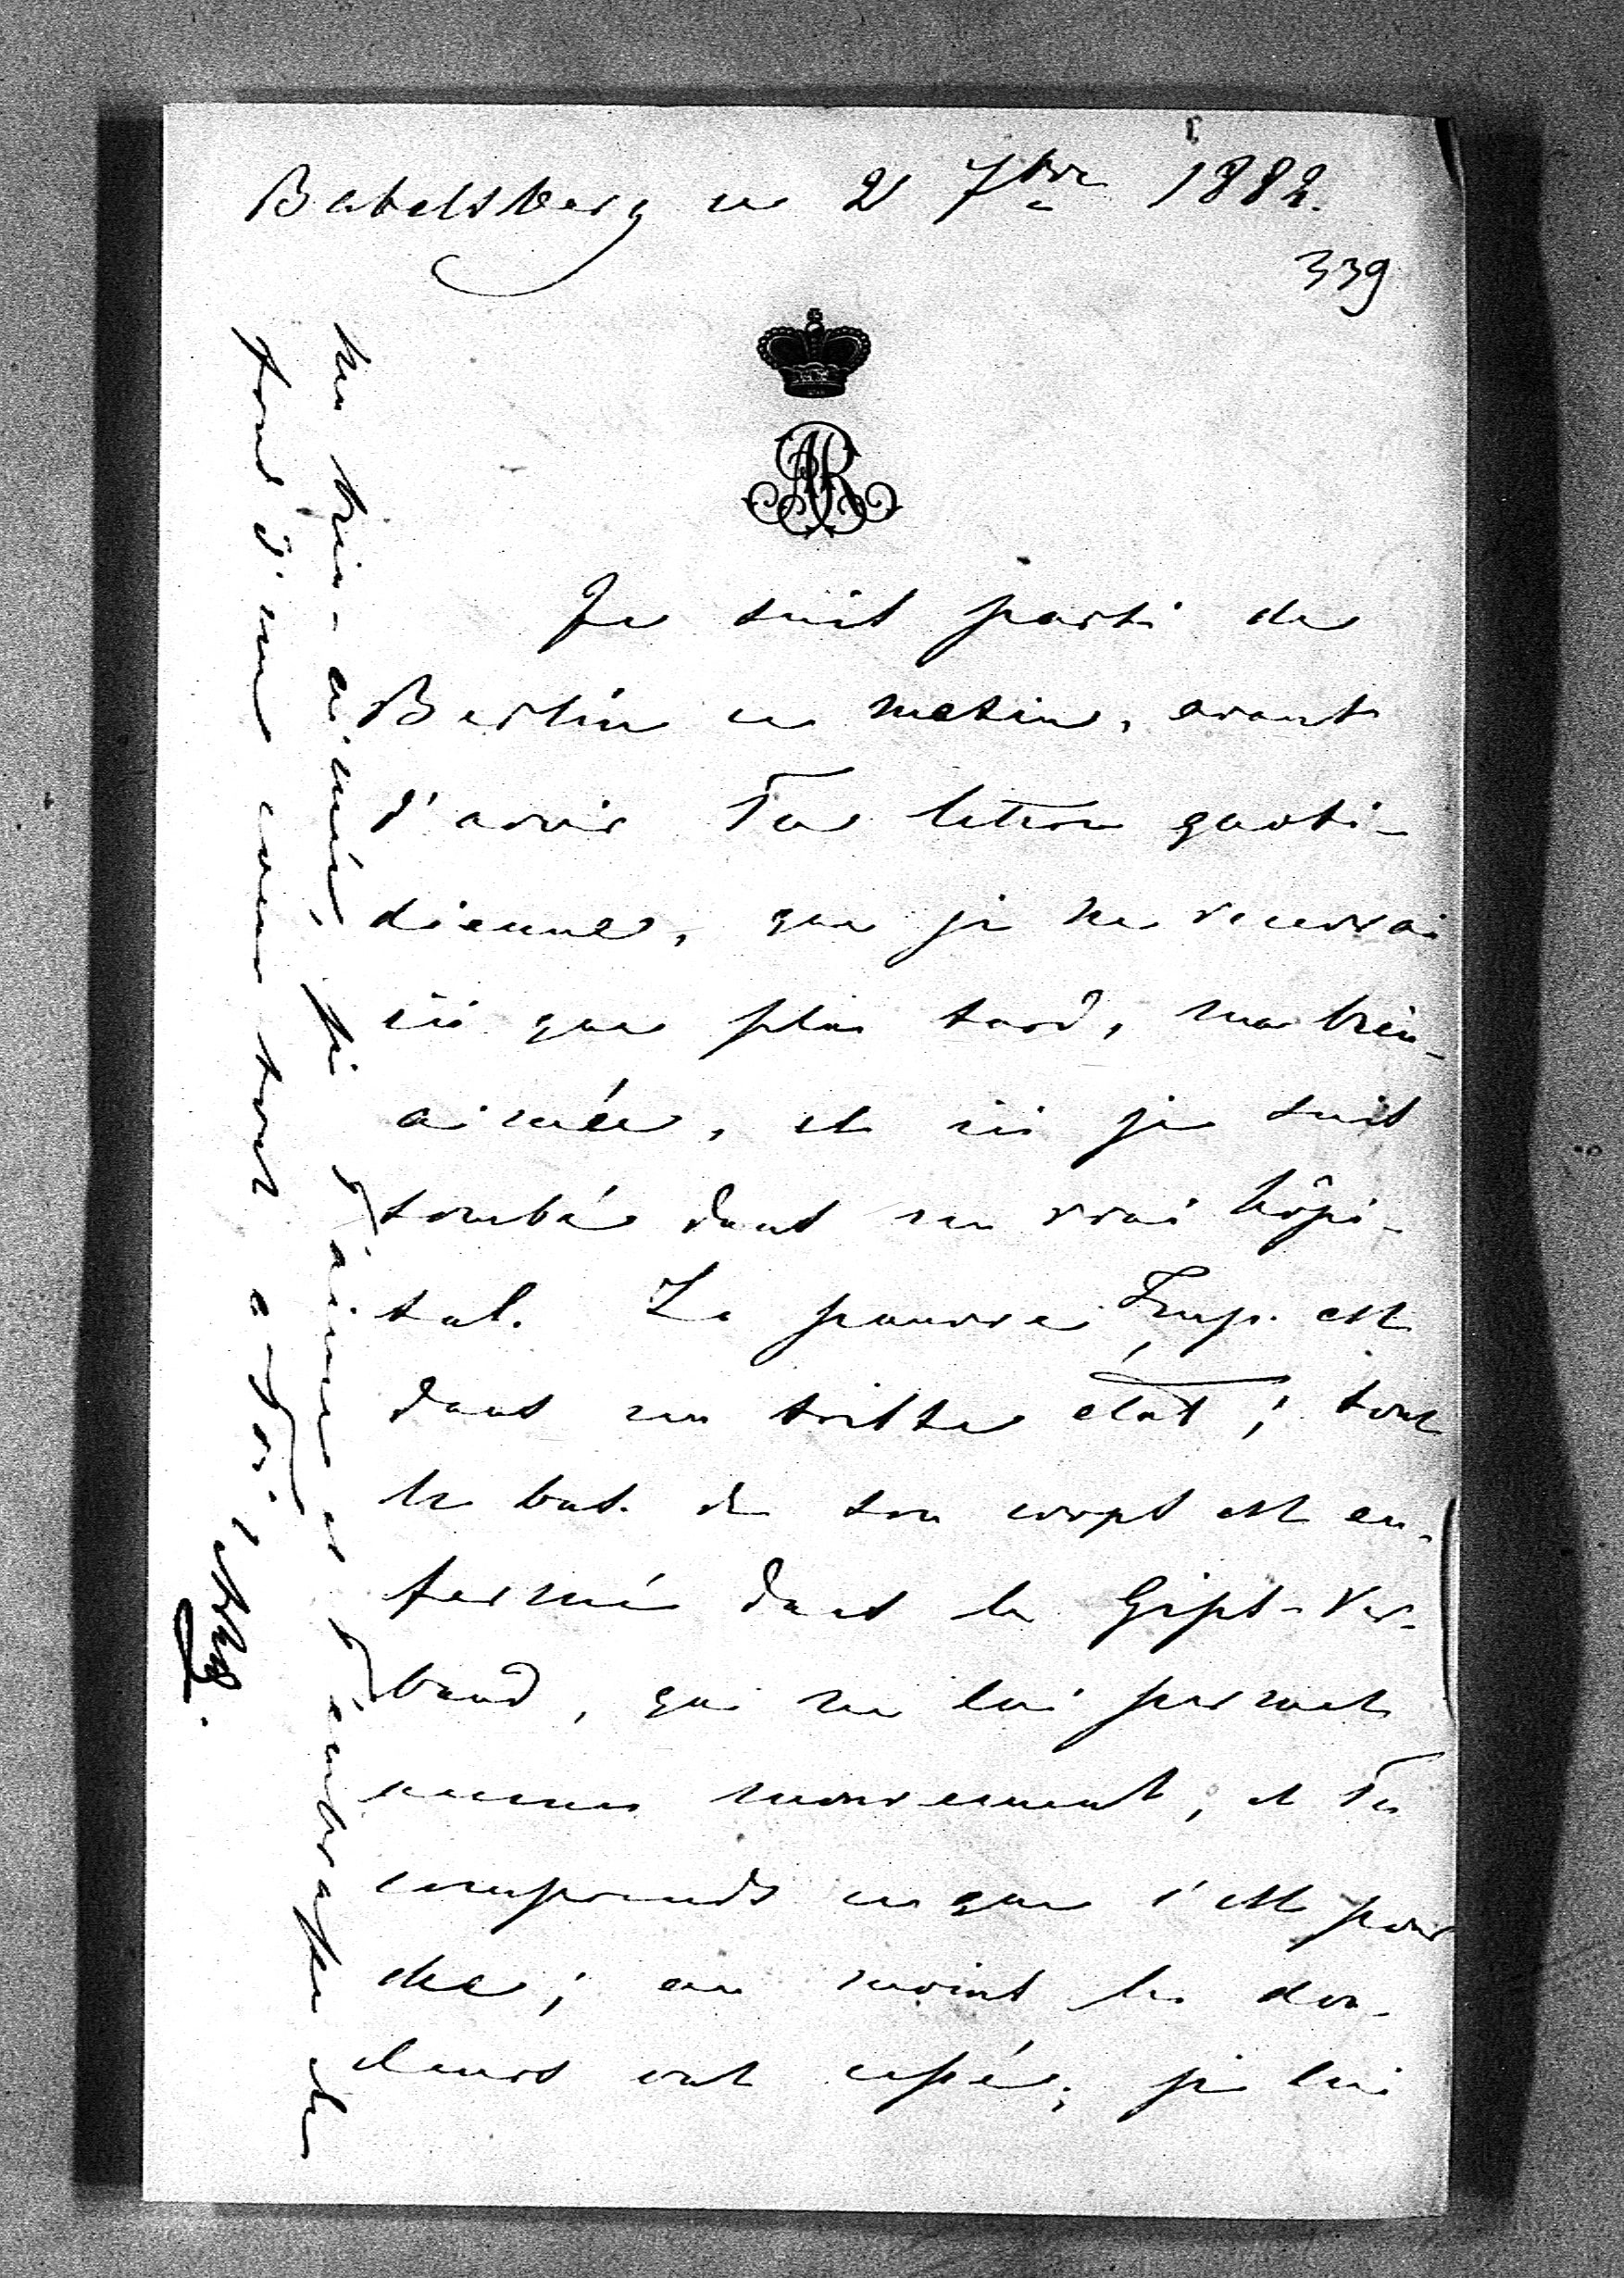 Babelsberg ce 2 7bre 1882.
339
AR
Je suis parti de
Berlin ce matin, avant
d'avoir Ta lettre quoti-
dienne, que je ne recevrai
ici que plus tard, ma bien-
aimée, et ici je suis
tombé dans un vrai hôpi-
tal. La pauvre Imp. est
dans un triste état; tout
le bas de son corps est en-
fermé dans le Gips-Ver-
band, qui ne lui permet
aucun mouvement, et Tu
comprends ce que c'est pour
elle; au moins les dou-
leurs ont cessé; je lui
ma bien-aimée, je T'aime et T'embrasse du
fond d'un cœur tout à Toi